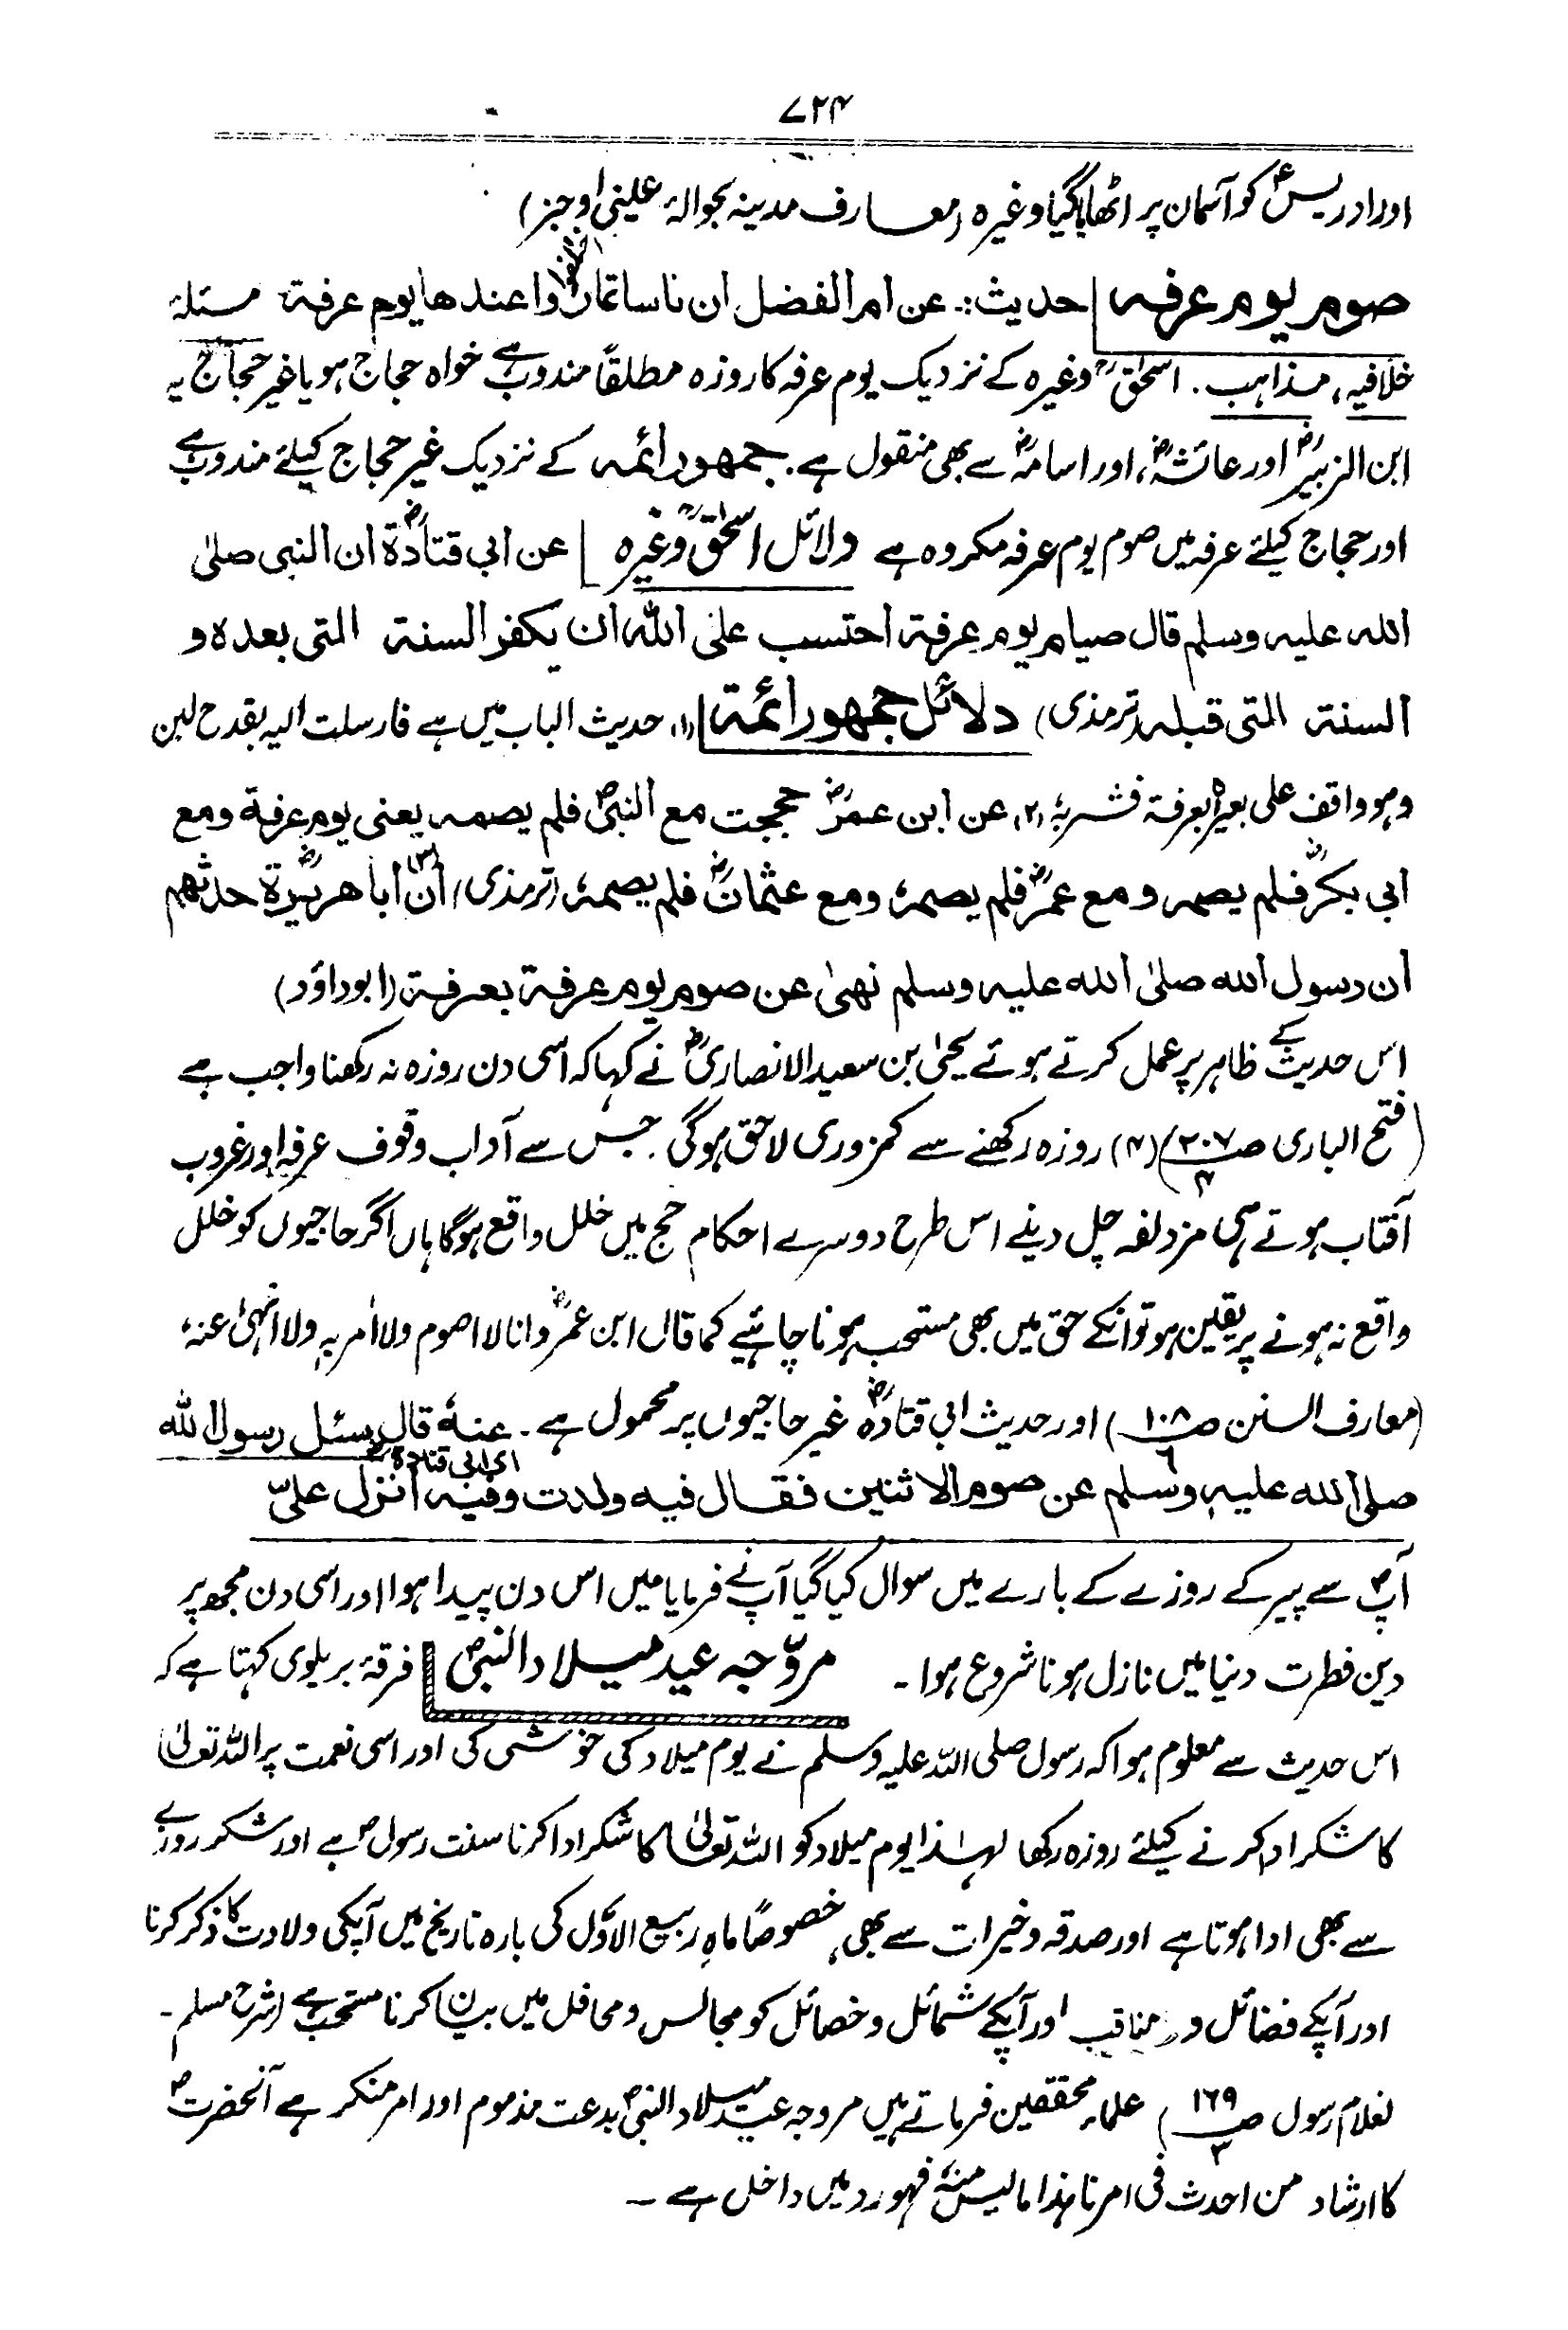 ۷۲۴
اور ادریسؑ کو آسمان پر اٹھایا گیا وغیرہ (معارف مدینہ بحوالۂ عینی اوجز)
صوم یوم عرفہ | حدیث:۔ عن ام الفضل ان ناسا تماروا عندها یوم عرفة مسئلۂ
خلافیہ، مذاہب۔ اسحٰقؒ وغیرہ کے نزدیک یوم عرفہ کا روزہ مطلقاً مندوب ہے خواہ حجاج ہو یا غیر حجاج یہ
ابن الزبیرؓ اور عائشہؓ، اور اسامہؓ سے بھی منقول ہے۔ جمہور ائمہ کے نزدیک غیر حجاج کیلئے مندوب ہے
اور حجاج کیلئے عرفہ میں صوم یوم عرفہ مکروہ ہے دلائل اسحٰقؒ وغیرہ | عن ابی قتادةؓ ان النبی صلی
الله علیه وسلم قال صیام یوم عرفة احتسب علی الله ان یکفر السنة التی بعده و
السنة التی قبله (ترمذی) دلائل جمہور ائمة | (۱) حدیث الباب میں ہے فارسلت الیہ بقدح لبن
وہو واقف علی بعیرہ بعرفة فشربہٗ (۲) عن ابن عمرؓ حججت مع النبیؐ فلم یصمه یعنی یوم عرفة ومع
ابی بکرؓ فلم یصمه ومع عمرؓ فلم یصمهٗ ومع عثمانؓ فلم یصمهٗ (ترمذی) (۳) ان ابا هریرةؓ حدثهم
ان رسول الله صلی الله علیه وسلم نهیٰ عن صوم یوم عرفة بعرفة (ابوداؤد)
اس حدیث کے ظاہر پر عمل کرتے ہوئے یحیٰی بن سعید الانصاریؒ نے کہا کہ اسی دن روزہ نہ رکھنا واجب ہے
(فتح الباری ص۲۰۷/۴) (۴) روزہ رکھنے سے کمزوری لاحق ہوگی جس سے آداب وقوف عرفہ اور غروب
آفتاب ہوتے ہی مزدلفہ چل دینے اس طرح دوسرے احکام حج میں خلل واقع ہوگا ہاں اگر حاجیوں کو خلل
واقع نہ ہونے پر یقین ہو تو انکے حق میں بھی مستحب ہونا چاہئیے کما قال ابن عمرؓ وانا لا اصوم ولا اٰمر بہٖ ولا انہیٰ عنہٗ
(معارف السنن ص۱۰۸/۶) اور حدیث ابی قتادہؓ غیر حاجیوں پر محمول ہے۔ عنهٗ قال سئل رسول الله
ای ابی قتادةؓ
صلی الله علیه وسلم عن صوم الاثنین فقال فیه ولدت وفیه انزل علیّ
آپؐ سے پیر کے روزے کے بارے میں سوال کیا گیا آپؐ نے فرمایا میں اس دن پیدا ہوا اور اسی دن مجھ پر
دین فطرت دنیا میں نازل ہونا شروع ہوا۔ مروّجہ عید میلاد النبیؐ | فرقۂ بریلوی کہتا ہے کہ
اس حدیث سے معلوم ہوا کہ رسول صلی اللہ علیہ وسلم نے یوم میلاد کی خوشی کی اور اسی نعمت پر اللہ تعالیٰ
کا شکر ادا کرنے کیلئے روزہ رکھا لہٰذا یوم میلاد کو اللہ تعالیٰ کا شکر ادا کرنا سنت رسولؐ ہے اور شکر روزے
سے بھی ادا ہوتا ہے اور صدقہ وخیرات سے بھی، خصوصًا ماہِ ربیع الاوّل کی بارہ تاریخ میں آپکی ولادت کا ذکر کرنا
اور آپکے فضائل و مناقب اور آپکے شمائل وخصائل کو مجالس ومحافل میں بیان کرنا مستحب ہے (شرح مسلم۔
لغلام رسول ص۱۶۹/۳) علماء محققین فرماتے ہیں مروجہ عید میلاد النبیؐ بدعت مذموم اور امر منکر ہے آنحضرتؐ
کا ارشاد من احدث فی امرنا ہٰذا ما لیس منہٗ فہو رد میں داخل ہے ۔